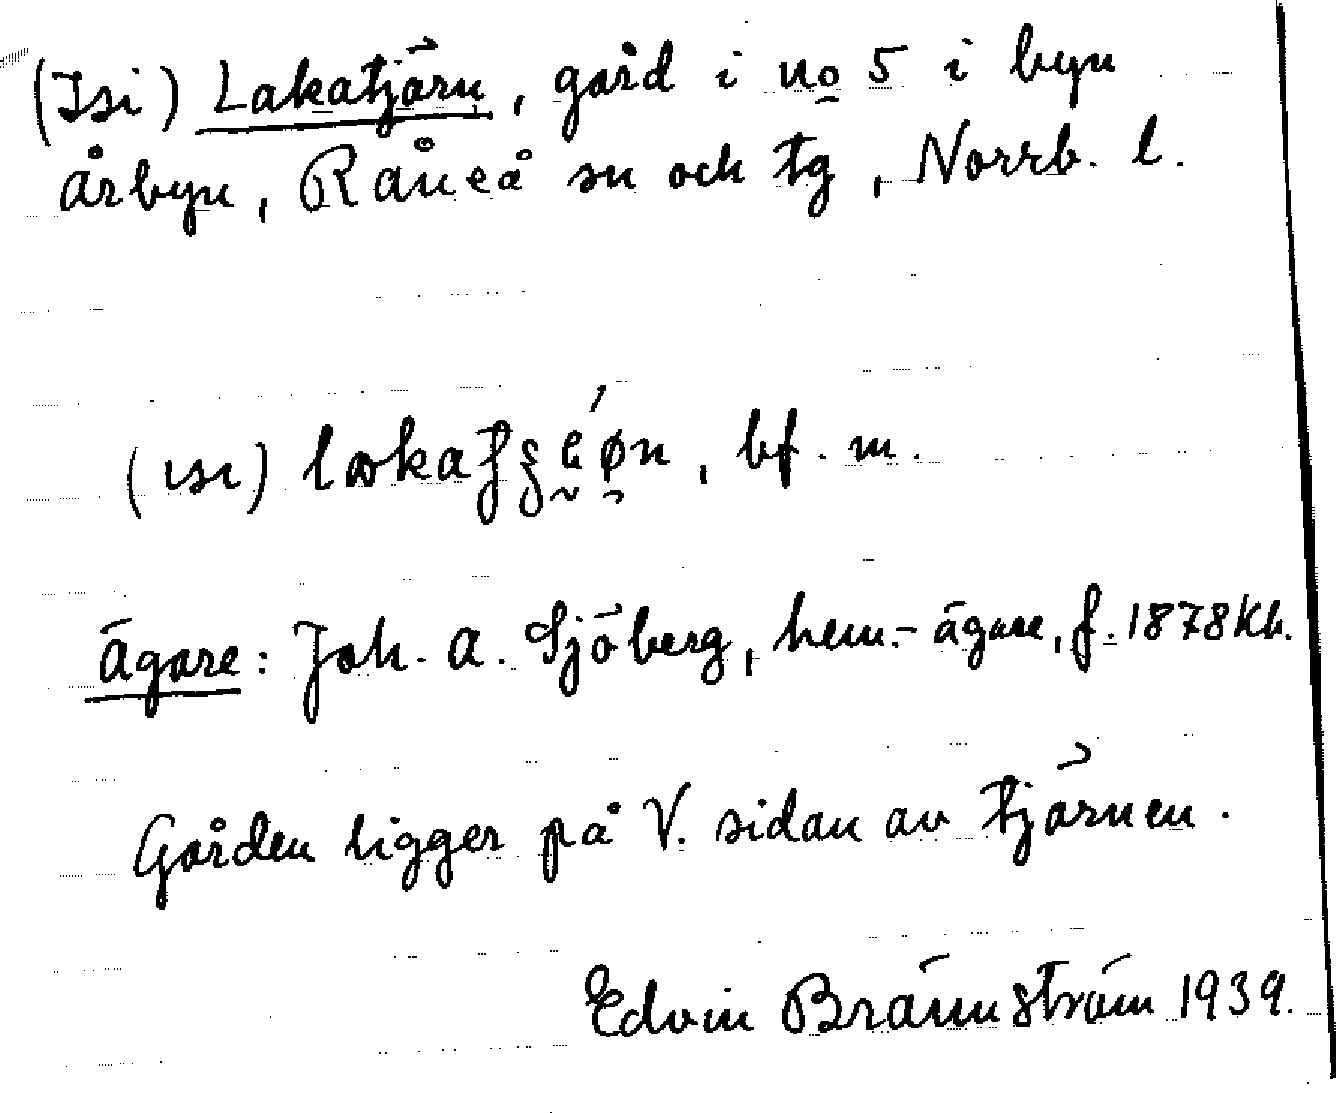 (Isi) Lakatjärn, gård i no 5 i byn
Årbyn, Råneå sn och tg, Norrb. l.
(ısı) , bf. m.
Ägare: Joh. A. Sjöberg, hem.-ägare, f. 1878 Kb.
Gården ligger på V. sidan av tjärnen.
Edvin Brännström 1939.